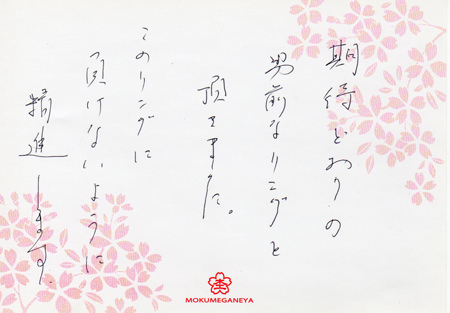 期待どおりの
男前なリングを
頂きました。
このリングに
負けないように
精進します。
MOKUMEGANEYA